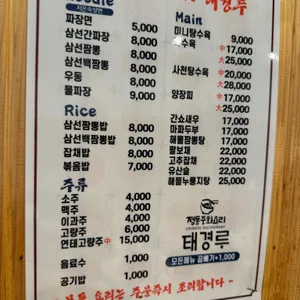 Noodle
짜장면 5,000
삼선간짜장 8,000
삼선짬뽕 8,000
삼선백짬뽕 8,000
우동 8,000
물짜장 9,000
Rice
삼선짬뽕밥 8,000
삼선백짬뽕밥 8,000
잡채밥 8,000
볶음밥 7,000
주류
소주 4,000
맥주 4,000
이과주 4,000
고량주 6,000
연태고량주 中 15,000
음료수 1,000
공기밥 1,000
태경루
Main
미니탕수육 9,000
탕수육 中 17,000
大 25,000
사천탕수육 中 20,000
大 28,000
양장피 中 17,000
大 25,000
간소새우 17,000
마파두부 17,000
해물짬뽕탕 17,000
팔보채 22,000
고추잡채 22,000
유산슬 22,000
해물누룽지탕 25,000
정통중화요리
CHINESE RESTAURANT
태경루
모든메뉴 곱빼기+1,000
모든 요리는 주문즉시 조리합니다